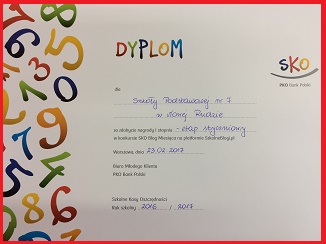 DYPLOM
SKO
PKO Bank Polski
dla
Szkoły Podstawowej nr 7
w Nowej Rudzie
za zdobycie nagrody I stopnia - etap styczniowy
w konkursie SKO Blog Miesiąca na platformie SzkolneBlogi.pl
Warszawa, dnia 23.02.2017
Biuro Młodego Klienta
PKO Bank Polski
Szkolne Kasy Oszczędności
Rok szkolny 2016 / 2017